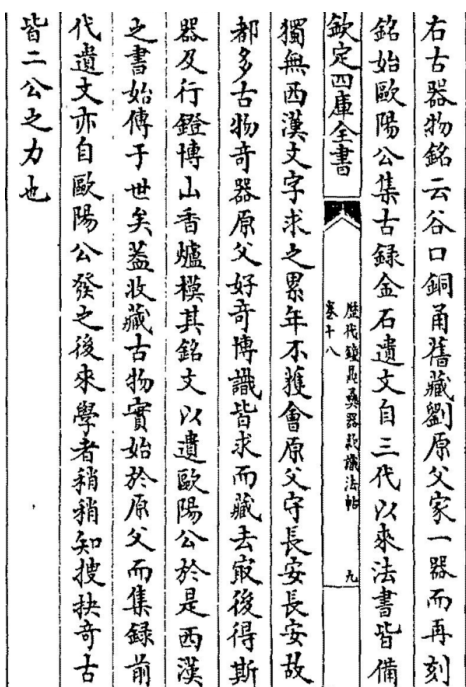 右古器物銘云谷口銅甬舊藏劉原父家一器而再刻
銘始歐陽公集古録金石遺文自三代以來法書皆備
欽定四庫全書
歷代鐘鼎彝器款識法帖
卷十八
九
獨無西漢文字求之累年不獲會原父守長安長安故
都多古物奇器原父好奇博識皆求而藏去㝡後得斯
器及行鐙博山香爐模其銘文以遺歐陽公於是西漢
之書始傳于世矣葢收藏古物實始於原父而集録前
代遺文亦自歐陽公發之後來學者稍稍知搜抉奇古
皆二公之力也